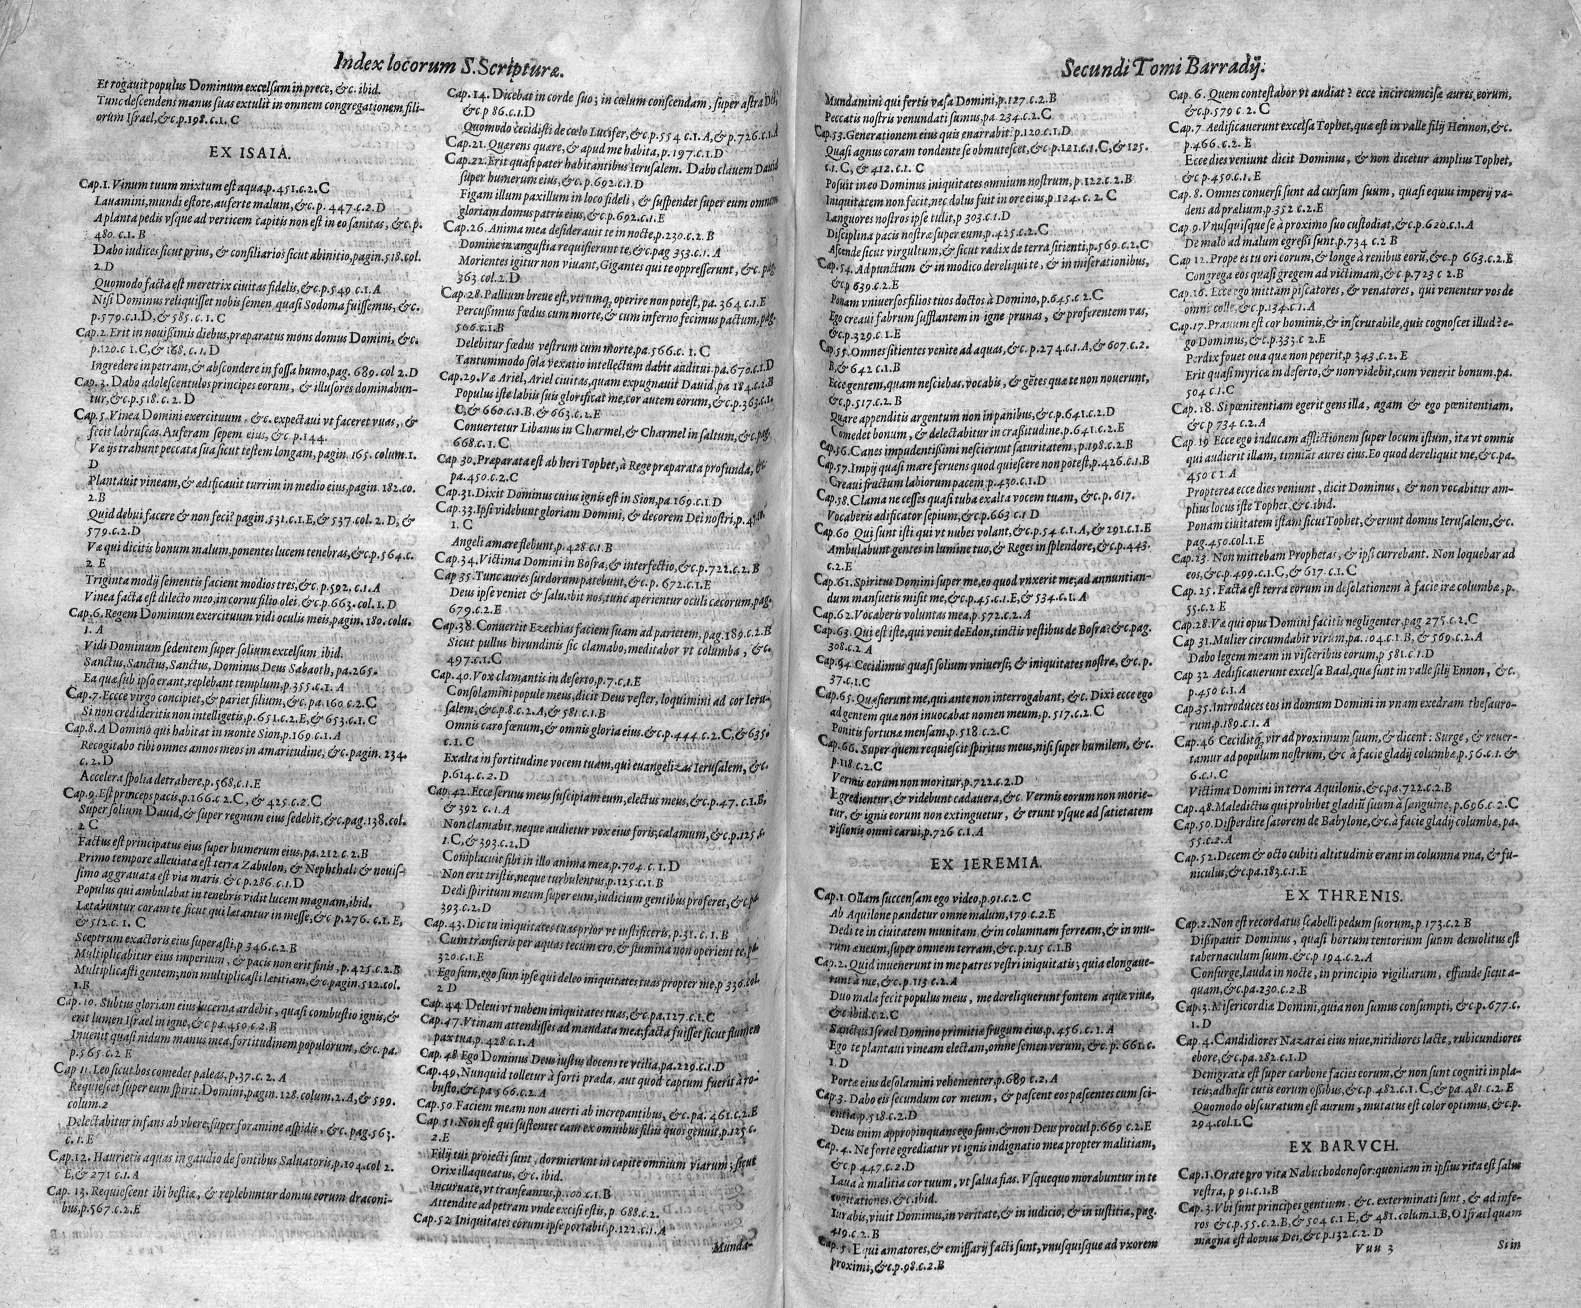 Index locorum S. Scripturæ.
Et rogauit populus Dominum excelsum in prece, &c. ibid.
Tunc descendens manus suas extulit in omnem congregationem fili-
orum Israel, &c. p. 198. c. 1. C
EX ISAIA.
Cap. 1. Vinum tuum mixtum est aqua, p. 451. c. 2. C
Lauamini, mundi estote, auferte malum, &c. p. 447. c. 2. D
A planta pedis vsque ad verticem capitis non est in eo sanitas, &c. p.
480. c. 1. B
Dabo iudices sicut prius, & consiliarios sicut ab initio, pagin. 518. col.
2. D
Quomodo facta est meretrix ciuitas fidelis, &c. p. 549. c. 1. A
Nisi Dominus reliquisset nobis semen, quasi Sodoma fuissemus, &c.
p. 579. c. 1. D, & 585. c. 1. C
Cap. 2. Erit in nouissimis diebus, præparatus mons domus Domini, &c.
p. 120. c 1. C, & 168. c. 1. D
Ingredere in petram, & abscondere in fossa humo, pag. 689. col 2. D
Cap. 3. Dabo adolescentulos principes eorum, & illusores dominabun-
tur, &c. p. 518. c. 2. D
Cap. 5. Vinea Domini exercituum, &c. expectaui vt faceret vuas, &
fecit labruscas. Auferam sepem eius, &c p. 144.
Væ ijs trahunt peccata sua sicut testem longam, pagin. 165. colum. 1.
D
Plantauit vineam, & ædificauit turrim in medio eius, pagin. 182. co.
2. B
Quid debui facere & non feci? pagin. 531. c. 1. E, & 537. col. 2. D, &
579. c. 2. D
Væ qui dicitis bonum malum, ponentes lucem tenebras, &c. p. 564. c.
2 E
Triginta modij sementis facient modios tres, &c. p. 592. c. 1. A
Vinea facta est dilecto meo, in cornu filio olei, &c. p. 663. col. 1. D
Cap. 6. Regem Dominum exercituum vidi oculis meis, pagin. 180. colu.
1. A
Vidi Dominum sedentem super solium excelsum, ibid.
Sanctus, Sanctus, Sanctus, Dominus Deus Sabaoth, pa. 265.
Ea quæ sub ipso erant, replebant templum, p. 355. c. 1. A
Cap. 7. Eccce virgo concipiet, & pariet filium, &c. pa. 160. c. 2. C
Si non credideritis non intelligetis, p. 651. c. 2. E, & 653. c. 1. C
Cap. 8. A Domino qui habitat in monte Sion, p. 169. c. 1. A
Recogitabo tibi omnes annos meos in amaritudine, &c. pagin. 234.
c. 2. D
Accelera spolia detrahere, p. 568, c. 1. E
Cap. 9. Est princeps pacis, p. 166. c 2. C, & 425. c. 2. C
Super solium Dauid, & super regnum eius sedebit, &c. pag. 138. col.
2 C
Factus est principatus eius super humerum eius, pa. 212 c. 2. B
Primo tempore alleuiata est terra Zabulon, & Nephthali & nouis-
simo aggrauata est via maris. &c p. 286. c. 1. D
Populus qui ambulabat in tenebris vidit lucem magnam, ibid.
Lætabuntur coram te sicut qui lætantur in messe, &c p. 276. c. 1. E,
& 512. c. 1. C
Sceptrum exactoris eius superasti, p 346. c. 2. B
Multiplicabitur eius imperium, & pacis non erit finis, p. 425. c. 2. B
Multiplicasti gentem; non multiplicasti lætitiam, &c. pagin. 512. col.
1. B
Cap. 10. Subtus gloriam eius lucerna ardebit, quasi combustio ignis, &
erit lumen Israel in igne, &c p4. 450. c. 2. B
Inuenit quasi nidum manus mea, fortitudinem populorum, &c. pa.
p. 565. c. 2 E
Cap 11. Leo sicut bos comedet paleas, p. 37. c. 2. A
Requiescet super eum spirit. Domini, pagin. 128. colum. 2. A, & 599.
colum. 2
Delectabitur infans ab vbere; super foramine aspidis, &c. pag. 563.
c. 1. E
Cap. 12. Haurietis aquas in gaudio de fontibus Saluatoris, p. 194. col 2.
E, & 271 c. 1. A
Cap. 13. Requiescent ibi bestiæ, & replebuntur domus eorum draconi-
bus, p. 567. c. 2. E
Cap. 14. Dicebat in corde suo; in cœlum conscendam, super astra Dei,
&c p 86. c. 1. D
Quomodo cecidisti de cœlo Lucifer, &c. p. 554 c. 1. A, & p. 726. c. 1. A
Cap. 21. Quærens quare, & apud me habita, p. 197. c. 1. D
Cap. 22. Erit quasi pater habitantibus Ierusalem. Dabo clauem Dauid
super humerum eius, &c. p. 692. c. 1. D
Figam illum paxillum in loco fideli, & suspendet super eum omnem
gloriam domus patris eius, &c. p. 692. c. 1. E
Cap. 26. Anima mea desiderauit te in nocte, p. 230. c. 2. B
Domine in angustia requisierunt te, &c. pag 353. c. 1. A
Morientes igitur non viuant, Gigantes qui te oppresserunt, &c. pag.
363 col. 2. D
Cap. 28. Pallium breue est, vtrumq, operire non potest, pa. 364 c. 1. E
Percussimus fœdus cum morte, & cum inferno fecimus pactum, pag.
506. c. 1. B
Delebitur fœdus vestrum cum morte, pa. 566. c. 1. C
Tantummodo sola vexatio intellectum dabit auditui. pa. 670. c. 1. D
Cap. 29. Væ Ariel, Ariel ciuitas, quam expugnauit Dauid, pa 184. c. 2. B
Populus iste labiis suis glorificat me, cor autem eorum, &c. p. 363. c. 1.
C, & 660. c. 1. B. & 663. c. 2. E
Conuertetur Libanus in Charmel, & Charmel in saltum, &c. pag.
668. c. 1. C
Cap 30. Præparata est ab heri Tophet, à Rege præparata profunda, &c
pa. 450. c. 2. C
Cap. 31. Dixit Dominus cuius ignis est in Sion, pa 169. c. 1. D
Cap. 33. Ipsi videbunt gloriam Domini, & decorem Dei nostri, p.
1. C
Angeli amare flebunt, p. 428 c. 1. B
Cap. 34. Victima Domini in Bosra, & interfectio, &c. p. 722. c. 2. B
Cap 35. Tunc aures surdorum patebunt, &c. p. 672. c. 1. E
Deus ipse veniet & saluabit nos, tunc aperientur oculi cæcorum, pag.
679. c. 2. E
Cap. 38. Conuertit Ezechias faciem suam ad parietem, pag. 189. c. 2. B
Sicut pullus hirundinis sic clamabo, meditabor vt columba, &c.
497. c. 1. C
Cap. 40. Vox clamantis in deserto, p. 7. c. 1. E
Consolamini popule meus, dicit Deus vester, loquimini ad cor Ieru-
salem, &c. p. 8. c. 2. A, & 581. c. 1. B
Omnis caro fœnum, & omnis gloria eius. &c. p. 444. c. 2. C, & 635.
c. 1. C
Exalta in fortitudine vocem tuam, qui euangelizas Ierusalem, &c.
p. 614. c. 2. D
Cap. 42. Ecce seruus meus suscipiam eum, electus meus, &c. p. 47. c. 1. B,
& 392 c. 1. A
Non clamabit, neque audietur vox eius foris; calamum, &c. p. 125 c.
1. C, & 393. c. 2. D
Complacuit sibi in illo anima mea, p. 704. c. 1. D
Non erit tristis, neque turbulentus, p. 125. c. 1. B
Dedi spiritum meum super eum, iudicium gentibus proferet, &c p.
393. c. 2. D
Cap. 43. Dic tu iniquitates tuas prior vt iustificeris, p. 31. c. 1. B
Cum transieris per aquas tecum ero, & flumina non operient te, p.
320. c. 1. E
Ego sum, ego sum ipse qui deleo iniquitates tuas propter me, p 336. col.
2 D
Cap. 44. Deleui vt nubem iniquitates tuas, &c. pa. 127. c. 1. C
Cap. 47. Vtinam attendisses ad mandata mea; facta fuisset sicut flumen
pax tua, p. 428 c. 1. A
Cap. 48 Ego Dominus Deus iustus docens te vtilia, pa. 229. c. 1. D
Cap. 49. Nunquid tolletur à forti præda, aut quod captum fuerit à ro-
busto, &c. pa 566. c. 2. A
Cap. 50. Faciem meam non auerti ab increpantibus, &c. pa. 461. c. 2. E
Cap. 51. Non est qui sustentet eam ex omnibus filiis quos genuit, p. 125. c.
2. E
Filij tui proiecti sunt, dormierunt in capite omnium viarum; sicut
Orix illaqueatus, &c. ibid.
Incuruate, vt transeamus, p. 100. c. 1. B
Attendite ad petram vnde excisi estis, p. 688. c. 2.
Cap. 52 Iniquitates eorum ipse portabit, p. 122. c. 1. A
Munda-
Secundi Tomi Barradij.
Mundamini qui fertis vasa Domini, p. 127. c. 2. B
Peccatis nostris venundati sumus, pa. 234. c. 2. C
Cap. 53. Generationem eius quis enarrabit: p. 120. c. 1. D
Quasi agnus coram tondente se obmutescet, &c. p. 121. c. 1. C, & 125.
c. 1. C, & 412. c. 1. C
Posuit in eo Dominus iniquitates omnium nostrum, p. 122. c. 2. B
Iniquitatem non fecit, nec dolus fuit in ore eius, p. 124. c. 2. C
Languores nostros ipse tulit, p 303. c. 1. D
Disciplina pacis nostræ super eum, p. 425. c. 2. C
Ascende sicut virgultum, & sicut radix de terra sitienti, p. 569. c. 2. C
Cap. 54. Ad punctum & in modico dereliqui te, & in miserationibus,
&c p 639. c. 2. E
Ponam vniuersos filios tuos doctos à Domino, p. 645. c. 2. C
Ego creaui fabrum sufflantem in igne prunas, & proferentem vas,
&c p. 329. c. 1. E
Cap. 55. Omnes sitientes venite ad aquas, &c. p. 274. c. 1. A, & 607. c. 2.
B, & 642 c. 1. B
Ecce gentem, quam nesciebas. vocabis, & gẽtes quæ te non nouerunt,
&c. p. 517. c. 2. B
Quare appenditis argentum non in panibus, &c. p. 641. c. 2. D
Comedet bonum, & delectabitur in crassitudine, p. 641. c. 2. E
Cap. 56. Canes impudentissimi nescierunt saturitatem, p. 198. c. 2. B
Cap. 57. Impij quasi mare feruens quod quiescere non potest, p. 426. c. 1. B
Creaui fructum labiorum pacem, p. 430. c. 1. D
Cap. 58. Clama ne cesses quasi tuba exalta vocem tuam, &c. p. 617.
Vocaberis ædificator sepium, &c. p. 663 c. 1 D
Cap. 60 Qui sunt isti qui vt nubes volant, &c. p. 54. c. 1. A, & 291. c. 1. E
Ambulabunt gentes in lumine tuo, & Reges in splendore, &c. p. 443.
c. 2. E
Cap. 61. Spiritus Domini super me, eo quod vnxerit me; ad annuntian-
dum mansuetis misit me, &c. p. 45. c. 1. E, & 534. c. 1. A
Cap. 62. Vocaberis voluntas mea, p. 572. c. 2. A
Cap. 63. Qui est iste, qui venit de Edon, tinctis vestibus de Bosra? &c. pag.
308. c. 2 A
Cap. 94 Cecidimus quasi folium vniuersi; & iniquitates nostræ, &c. p.
37. c. 1. C
Cap. 65. Quæsierunt me, qui ante non interrogabant, &c. Dixi ecce ego
ad gentem quæ non inuocabat nomen meum, p. 517. c. 2. C
Ponitis fortunæ mensam, p. 518. c. 2. C
Cap. 66. Super quem requiescit spiritus meus, nisi super humilem, &c.
p. 118. c. 2. C
Vermis eorum non moritur, p. 722. c. 2. D
Egredientur, & videbunt cadauera, &c. Vermis eorum non morie-
tur, & ignis eorum non extinguetur, & erunt vsque ad satietatem
visionis omni carni, p. 726 c. 1. A
EX IEREMIA.
Cap. 1. Ollam succensam ego video, p. 91. c. 2. C
Ab Aquilone pandetur omne malum, 179 c. 2. E
Dedi te in ciuitatem munitam, & in columnam ferream, & in mu-
rum æneum, super omnem terram, &c. p. 215 c. 1. B
Cap. 2. Quid inuenerunt in me patres vestri iniquitatis; quia elongaue-
runt à me, &c. p. 113 c. 2. A
Duo mala fecit populus meus, me dereliquerunt fontem aquæ viuæ,
&c ibid. c. 2. C
Sanctus Israel Domino primitiæ frugum eius, p. 456. c. 1. A
Ego te plantaui vineam electam, omne semen verum, &c. p. 661. c.
1. D
Portæ eius desolamini vehementer, p. 689 c. 2. A
Cap 3. Dabo eis secundum cor meum, & pascent eos pascentes eum sci-
entia, p. 518. c. 2. D
Deus enim appropinquans ego sum, & non Deus procul, p. 669 c. 2. E
Cap. 4. Ne forte egrediatur vt ignis indignatio mea propter malitiam,
&c p. 447. c. 2. D
Laua à malitia cor tuum, vt salua fias. Vsquequo morabuntur in te
cogitationes, &c. ibid.
Iurabis, viuit Dominus, in veritate, & in iudicio, & in iustitia, pag.
419. c. 2. B
Cap. 5. Equi amatores, & emissarij facti sunt, vnusquisque ad vxorem
proximi, &c. p. 98. c. 2. B
Cap. 6. Quem contestabor vt audiat? ecce incircumcisæ aures eorum,
&c. p. 579 c. 2. C
Cap. 7. Aedificauerunt excelsa Tophet, quæ est in valle filij Hennon, &c.
p. 466. c. 2. E
Ecce dies veniunt dicit Dominus, & non dicetur amplius Tophet,
&c p. 450. c. 1. E
Cap. 8. Omnes conuersi sunt ad cursum suum, quasi equus imperij va-
dens ad prælium, p. 352 c. 2. E
Cap. 9. Vnusquisque se à proximo suo custodiat, &c. p. 620. c. 1. A
De malo ad malum egressi sunt, p. 734 c. 2 B
Cap 12. Prope es tu ori eorum, & longe à renibus eorũ, &c. p 663. c. 2. E
Congrega eos quasi gregem ad victimam, &c. p. 723 c 2. B
Cap. 16. Ecce ego mittam piscatores, & venatores, qui venentur vos de
omni colle, &c. p. 134. c. 1. A
Cap. 17. Prauum est cor hominis, & inscrutabile, quis cognoscet illud? e-
go Dominus, &c. p. 333 c. 2. E
Perdix fouet oua quæ non peperit, p 343. c. 2. E
Erit quasi myricæ in deserto, & non videbit, cum venerit bonum. pa.
504 c. 1. C
Cap. 18. Si pœnitentiam egerit gens illa, agam & ego pœnitentiam,
&c p 734 c. 2. A
Cap. 19 Ecce ego inducam afflictionem super locum istum, ita vt omnis
qui audierit illam, tinniãt aures eius. Eo quod dereliquit me, &c. pa.
450 c 1. A
Propterea ecce dies veniunt, dicit Dominus, & non vocabitur am-
plius locus iste Tophet, &c. ibid.
Ponam ciuitatem istam sicut Tophet, & erunt domus Ierusalem, &c.
pag. 450. col. 1. E
Cap. 23. Non mittebam Prophetas, & ipsi currebant. Non loquebar ad
eos, &c. p. 499. c. 1. C, & 617. c. 1. C
Cap. 25. Facta est terra eorum in desolationem à facie iræ columbæ, p.
55. c. 2 E
Cap. 28. Væ qui opus Domini facitis negligenter, pag 275. c. 2. C
Cap 31. Mulier circumdabit virum, pa. 104. c. 1. B, & 569. c. 2. A
Dabo legem meam in visceribus eorum, p 581. c. 1. D
Cap 32. Aedificauerunt excelsa Baal, quæ sunt in valle filij Ennon, &c.
p. 450 c. 1. A
Cap. 35. Introduces eos in domum Domini in vnam exedram thesauro-
rum, p. 189. c. 1. A
Cap. 46 Ceciditq, vir ad proximum suum, & dicent: Surge, & reuer-
tamur ad populum nostrum, &c à facie gladij columbæ, p. 56. c. 1. &
6. c. 1. C
Victima Domini in terra Aquilonis, &c. pa. 722. c. 2. B
Cap. 48. Maledictus qui probibet gladiũ suum à sanguine, p. 696. c. 2. C
Cap. 50. Disperdite satorem de Babylone, &c. à facie gladij columbæ, pa.
55. c. 2. A
Cap. 52. Decem & octo cubiti altitudinis erant in columna vna, & fu-
niculus, &c. pa. 183. c. 1. E
EX THRENIS.
Cap. 2. Non est recordatus scabelli pedum suorum, p 173. c. 2 B
Dissipauit Dominus, quasi hortum tentorium suum demolitus est
tabernaculum suum. &c p 194. c. 2. A
Consurge, lauda in nocte, in principio vigiliarum, effunde sicut a-
quam, &c. pa. 230. c. 2. B
Cap. 3. Misericordiæ Domini, quia non sumus consumpti, &c. p. 677. c.
1. D
Cap. 4. Candidiores Nazaræi eius niue, nitidiores lacte, rubicundiores
ebore, &c. pa. 282. c. 1. D
Denigrata est super carbone facies eorum, & non sunt cogniti in pla-
teis; adhæsit cutis eorum ossibus, &c. p. 482. c. 1. C, & pa. 481. c. 2. E
Quomodo obscuratum est aurum, mutatus est color optimus, &c. p.
294. col. 1. C
EX BARVCH.
Cap. 1. Orate pro vita Nabuchodonosor: quoniam in ipsius vita est salus
vestra, p 91. c. 1. B
Cap. 3. Vbi sunt principes gentium. &c. exterminati sunt, & ad infe-
ros &c p. 55. c. 2. B, & 504 c. 1 E, & 481. colum. 1. B, O Israel quam
magna est domus Dei, &c p. 132 c. 2. D
Vuu 3
Si in